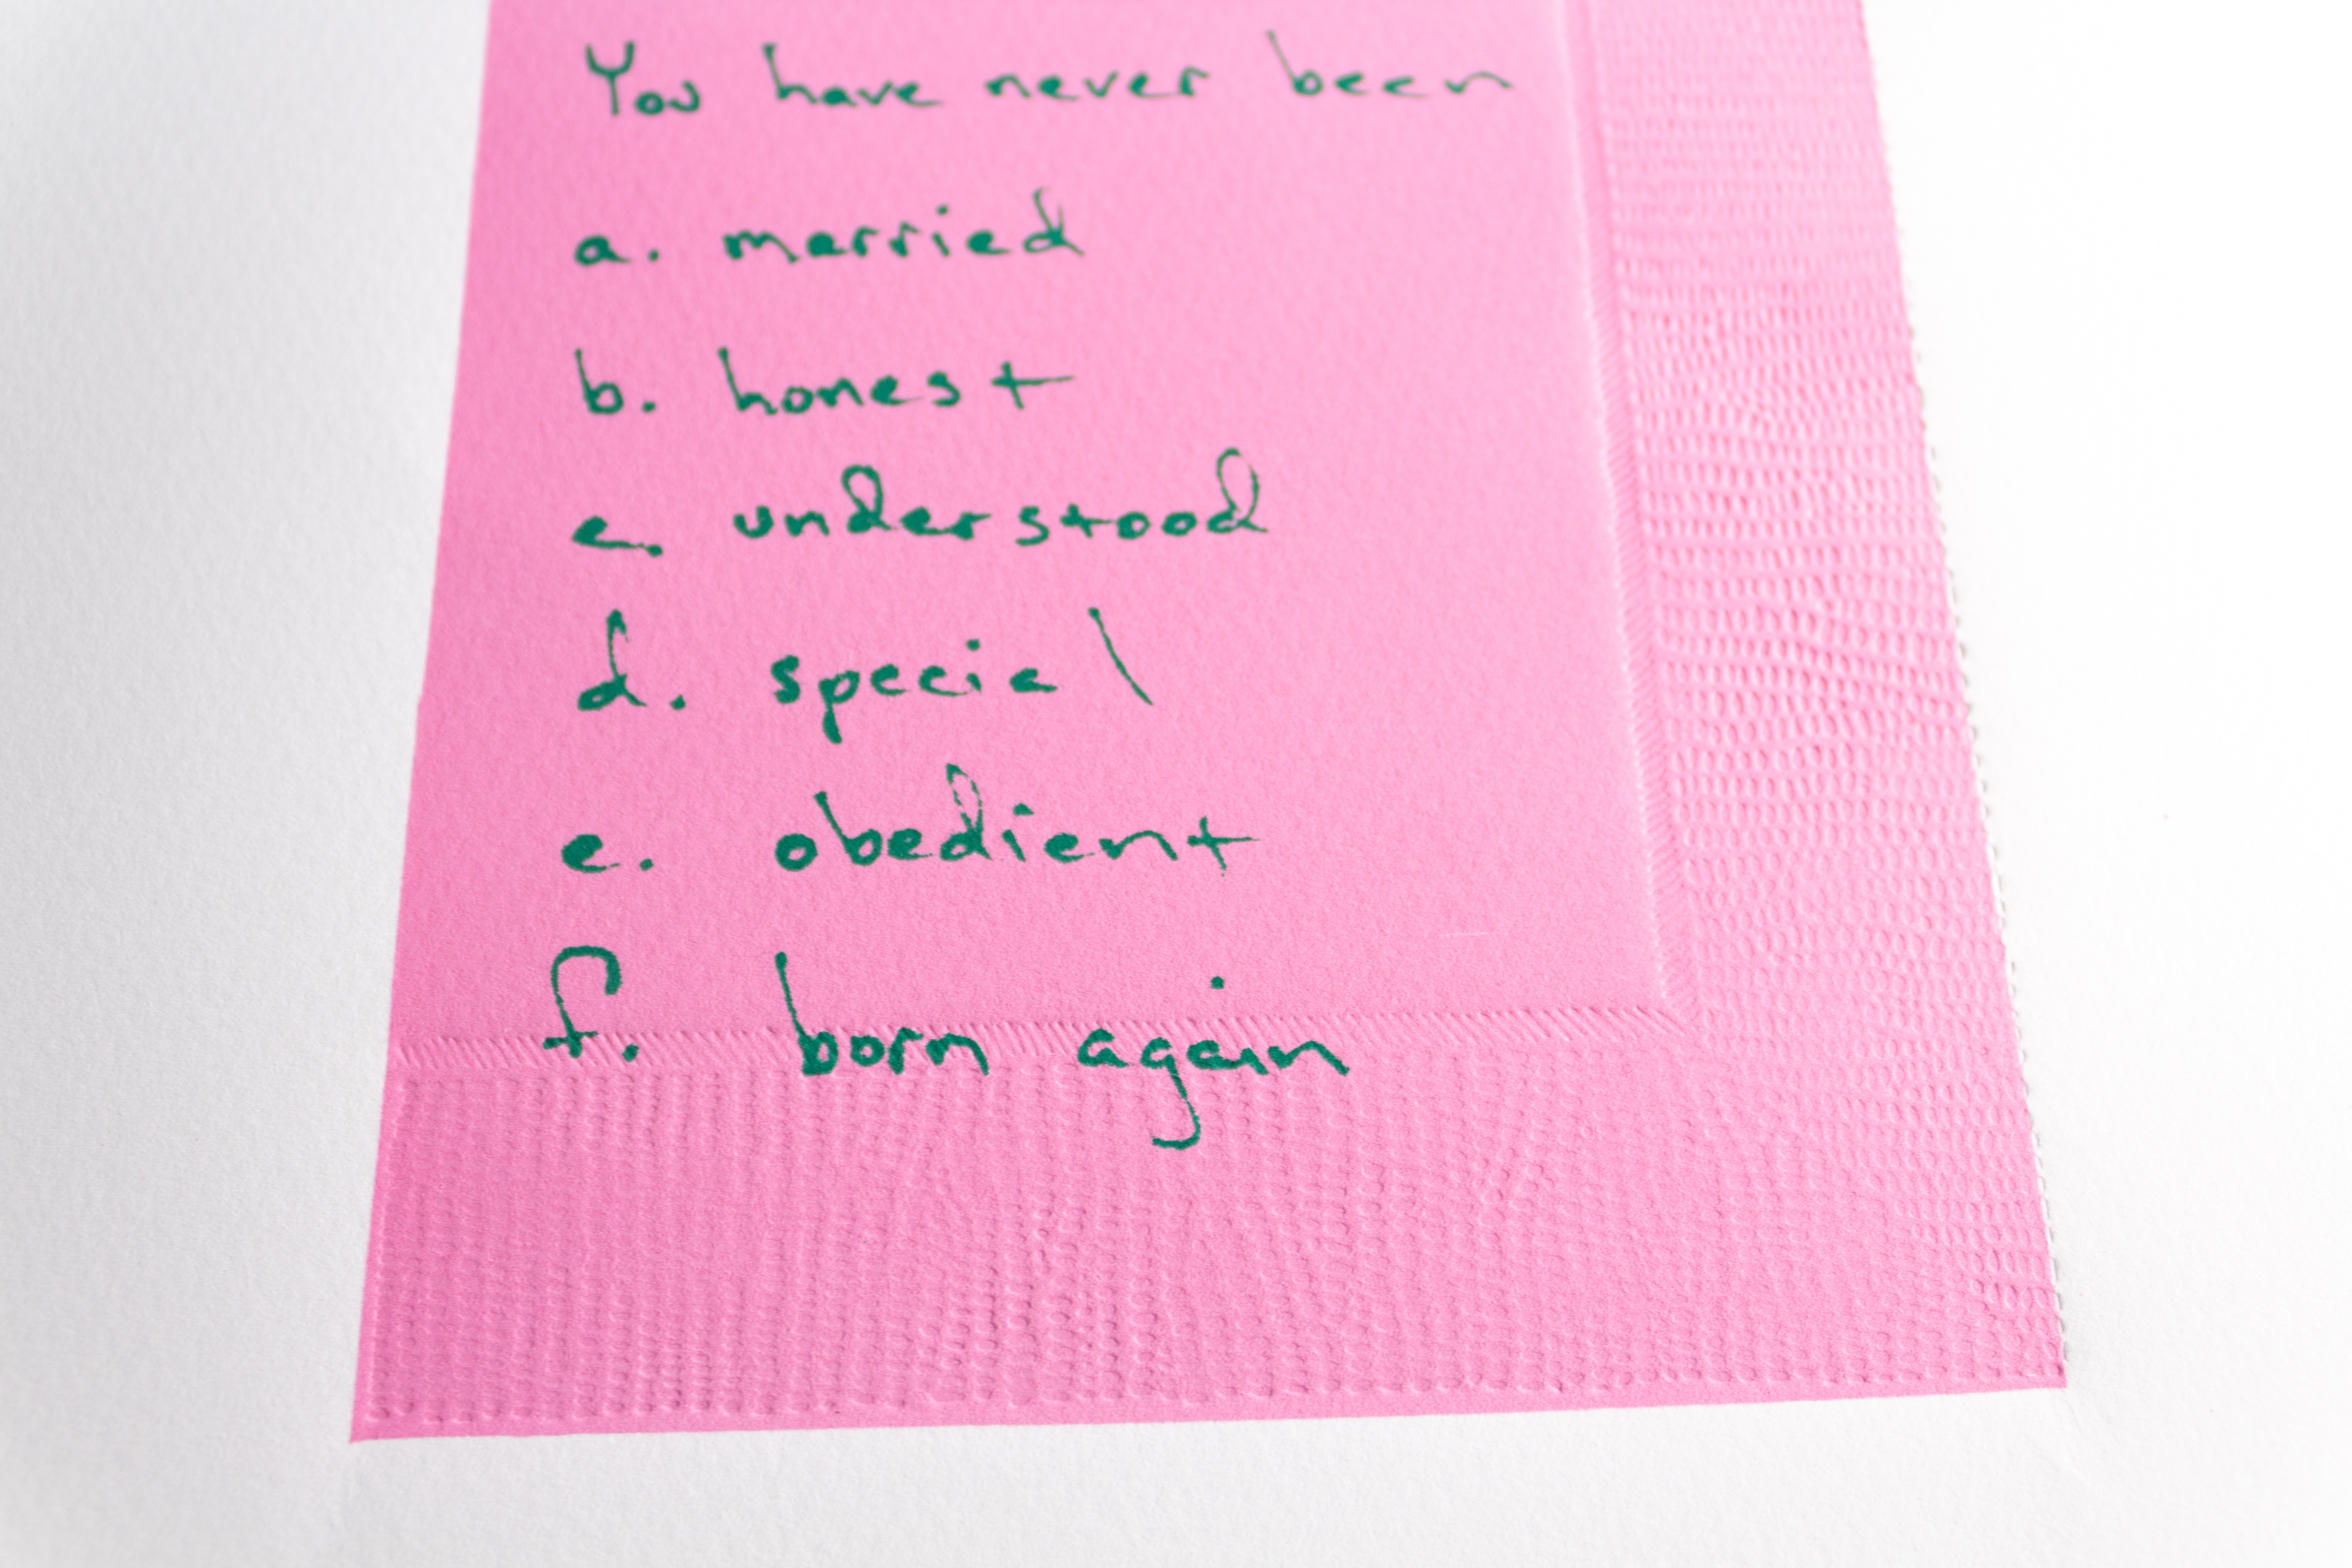 You have never been
a. married
b. honest
c. understood
d. special
e. obedient
f. born again